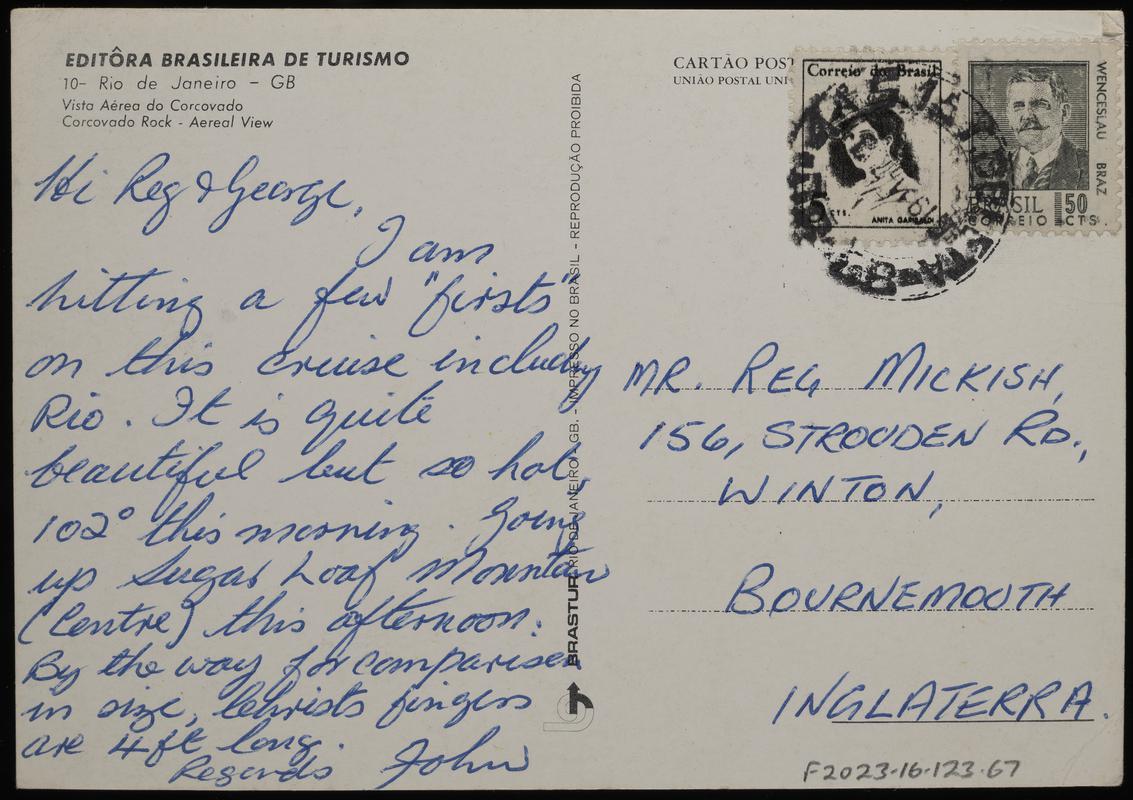 EDITÔRA BRASILEIRA DE TURISMO
10- Rio de Janeiro - GB
Vista Aérea do Corcovado
Corcovado Rock - Aereal View
Hi Reg & George,
I am
hitting a few "firsts"
on this cruise includg
Rio. It is quite
beautiful but so hot,
102° this morning. Going
up Sugar Loaf Mountain
(Centre) this afternoon.
By the way for comparison
in size, Christs fingers
are 4ft long.
Regards John
BRASTUR RIO DE JANEIRO - GB. - IMPRESSO NO BRASIL - REPRODUÇÃO PROIBIDA
CARTÃO POST
UNIÃO POSTAL UNI
Correio do Brasil
CTS.
ANITA GARIBALDI
WENCESLAU BRAZ
BRASIL 50
CORREIO CTS
MR. REG MICKISH,
156, STROUDEN RD.,
WINTON,
BOURNEMOUTH
INGLATERRA.
F2023-16-123-67